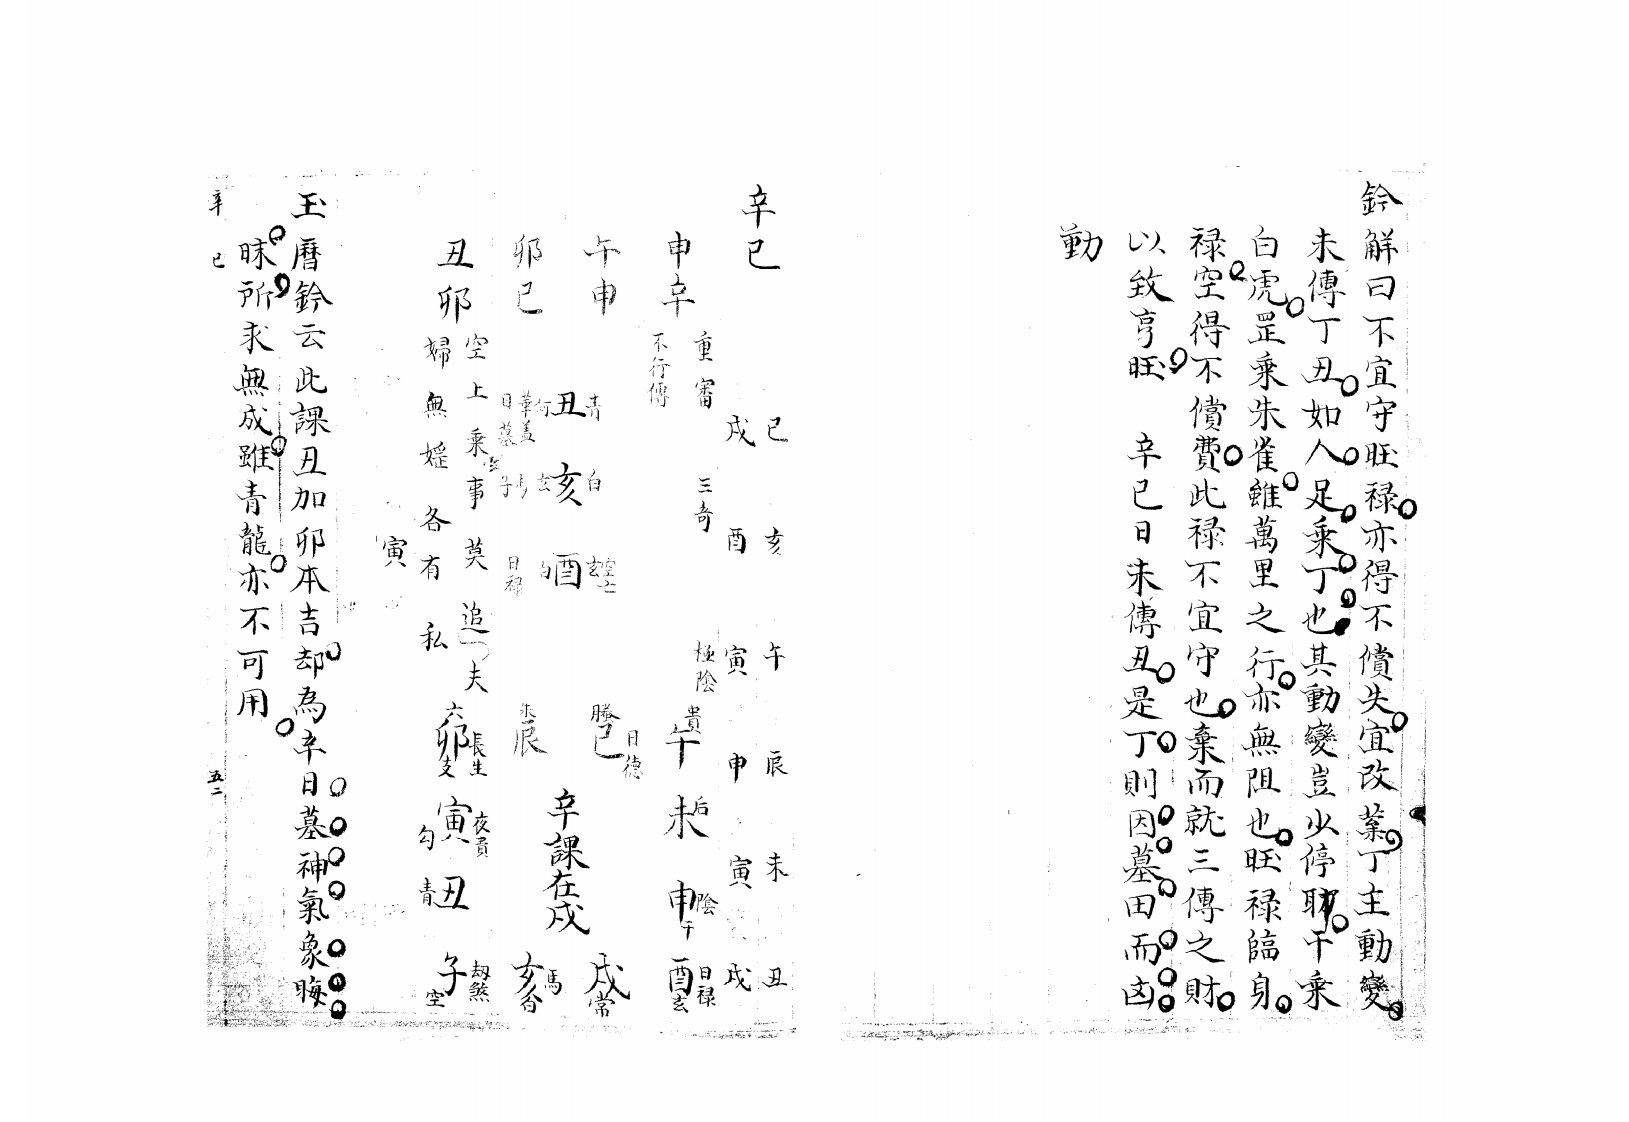 鈐解曰不宜守旺禄亦得不償失宜改業丁主動變
未傳丁丑如人足乘丁也其動變豈少停耶干乘
白虎罡乘朱雀雖萬里之行亦無阻也旺禄臨身
禄空得不償費此禄不宜守也棄而就三傳之財
以致亨旺 辛巳日未傳丑是丁則因墓田而凶
動
辛巳
巳 亥 午 辰 未 丑
戌 酉 寅 申 寅 戌
重審 三奇 極陰
不行傳
申辛
午申
卯巳
丑卯
青 丑 華盖 日墓
白 亥 玄 子
空亡 玄 酉 日禄
空上乘事莫追夫
婦無婬各有私
寅
貴 午 后 未 陰 申 干 日禄 酉 玄
螣 巳 日德 戌 常
朱 辰 亥 馬 合
六 卯 長生 支 寅 夜貴 勾 丑 青 子 劫煞 空
辛課在戌
玉曆鈐云此課丑加卯本吉却為辛日墓神氣象晦
昧所求無成雖青龍亦不可用
辛巳 五二